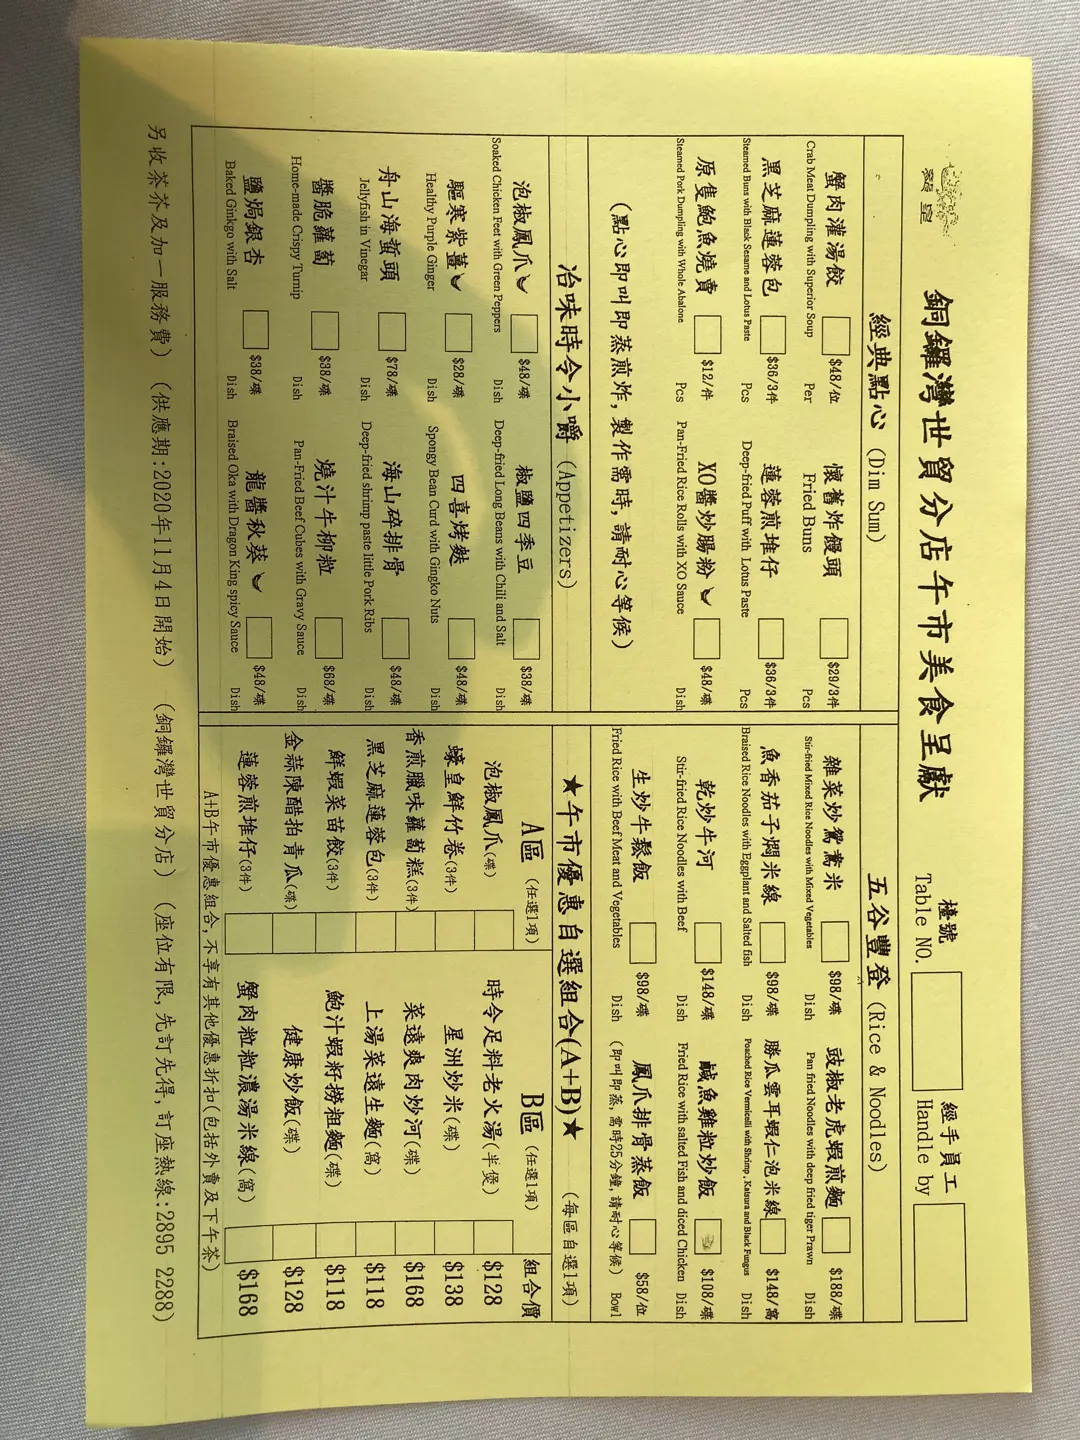 銅鑼灣世貿分店午市美食呈獻
檯號
Table NO.
經手員工
Handle by
經典點心 (Dim Sum)
蟹肉灌湯餃 $48/位
Crab Meat Dumpling with Superior Soup Per
懷舊炸饅頭 $29/3件
Fried Buns Pcs
黑芝麻蓮蓉包 $36/3件
Steamed Buns with Black Sesame and Lotus Paste Pcs
蓮蓉煎堆仔 $36/3件
Deep-fried Puff with Lotus Paste Pcs
原隻鮑魚燒賣 $12/件
Steamed Pork Dumpling with Whole Abalone Pcs
XO醬炒腸粉 $48/碟
Pan-Fried Rice Rolls with XO Sauce Dish
(點心即叫即蒸煎炸,製作需時,請耐心等候)
冶味時令小嚼 (Appetizers)
泡椒鳳爪 $48/碟
Soaked Chicken Feet with Green Peppers Dish
椒鹽四季豆 $38/碟
Deep-fried Long Beans with Chili and Salt Dish
驅寒紫薑 $28/碟
Healthy Purple Ginger Dish
四喜烤麩 $48/碟
Spongy Bean Curd with Gingko Nuts Dish
舟山海蜇頭 $78/碟
Jellyfish in Vinegar Dish
海山碎排骨 $48/碟
Deep-fried shrimp paste little Pork Ribs Dish
醬脆蘿蔔 $38/碟
Home-made Crispy Turnip Dish
燒汁牛柳粒 $68/碟
Pan-Fried Beef Cubes with Gravy Sauce Dish
鹽焗銀杏 $38/碟
Baked Ginkgo with Salt Dish
龍醬秋葵 $48/碟
Braised Oka with Dragon King spicy Sauce Dish
五谷豐登 (Rice & Noodles)
雜菜炒鴛鴦米 $98/碟
Stir-fried Mixed Rice Noodles with Mixed Vegetables Dish
豉椒老虎蝦煎麵 $188/碟
Pan fried Noodles with deep fried tiger Prawn Dish
魚香茄子燜米線 $98/碟
Braised Rice Noodles with Eggplant and Salted fish Dish
勝瓜雲耳蝦仁泡米線 $148/窩
Poached Rice Vermicelli with Shrimp , Katsura and Black Fungus Dish
乾炒牛河 $148/碟
Stir-fried Rice Noodles with Beef Dish
鹹魚雞粒炒飯 $108/碟
Fried Rice with salted Fish and diced Chicken Dish
生炒牛鬆飯 $98/碟
Fried Rice with Beef Meat and Vegetables Dish
鳳爪排骨蒸飯 $58/位
(即叫即蒸,需時25分鐘,請耐心等候) Bowl
★午市優惠自選組合(A+B)★ (每區自選1項)
A區 (任選1項) B區 (任選1項) 組合價
泡椒鳳爪(碟) 時令足料老火湯(半煲) $128
蠔皇鮮竹卷(3件) 星洲炒米(碟) $138
香煎臘味蘿蔔糕(3件) 菜遠爽肉炒河(碟) $168
黑芝麻蓮蓉包(3件) 上湯菜遠生麵(窩) $118
鮮蝦菜苗餃(3件) 鮑汁蝦籽撈粗麵(碟) $118
金蒜陳醋拍青瓜(碟) 健康炒飯(碟) $128
蓮蓉煎堆仔(3件) 蟹肉粒粒濃湯米線(窩) $168
A+B午市優惠組合,不享有其他優惠折扣(包括外賣及下午茶)
另收茶芥及加一服務費) (供應期:2020年11月4日開始) (銅鑼灣世貿分店) (座位有限,先訂先得,訂座熱線:2895 2288)